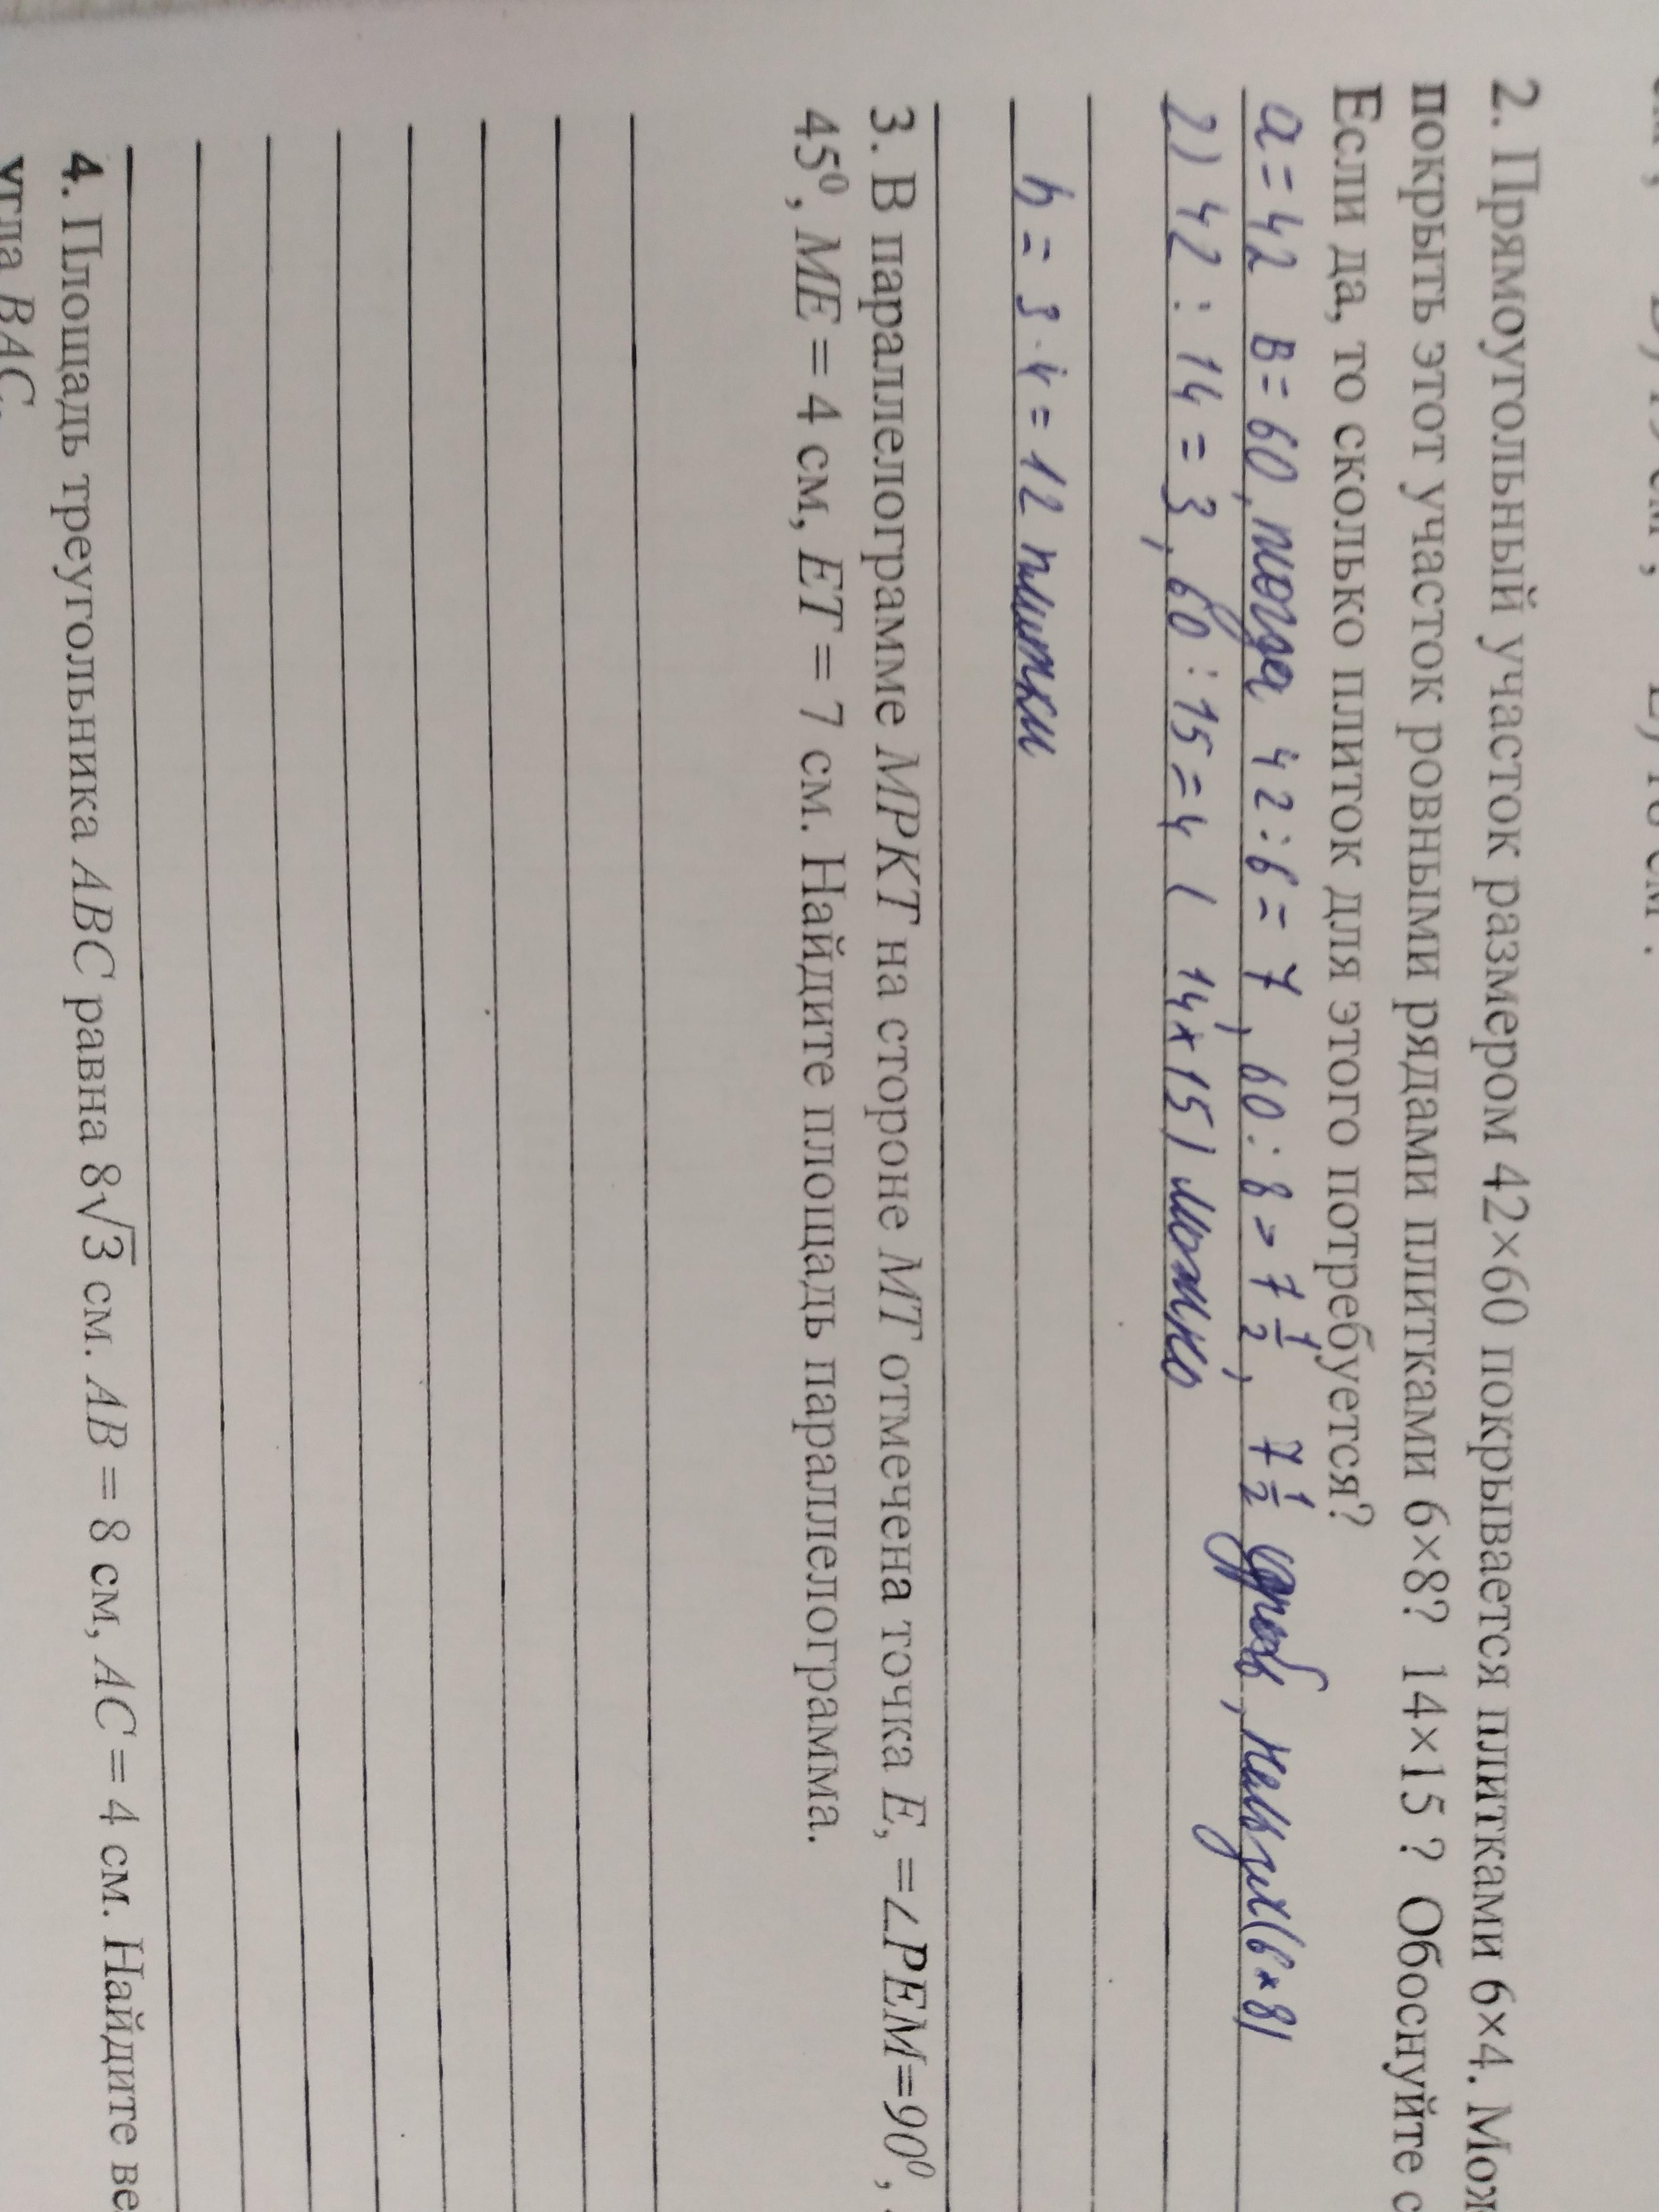 2. Прямоугольный участок размером 42×60 покрывается плитками 6×4. Мож
покрыть этот участок ровными рядами плитками 6×8? 14×15 ? Обоснуйте с
Если да, то сколько плиток для этого потребуется?
a = 42 B = 60, тогда 42 : 6 = 7, 60 : 8 = 7 1/2, 7 1/2 дробь, (6 × 8)
2) 42 : 14 = 3, 60 : 15 = 4 ( 14 × 15 ) можно
h = 3 · 4 = 12 плитки
3. В параллелограмме МРКТ на стороне МТ отмечена точка Е, =∠PEM=90⁰,
45⁰, ME = 4 см, ET = 7 см. Найдите площадь параллелограмма.
4. Площадь треугольника ABC равна 8√3 см. AB = 8 см, AC = 4 см. Найдите ве
угла BAC.